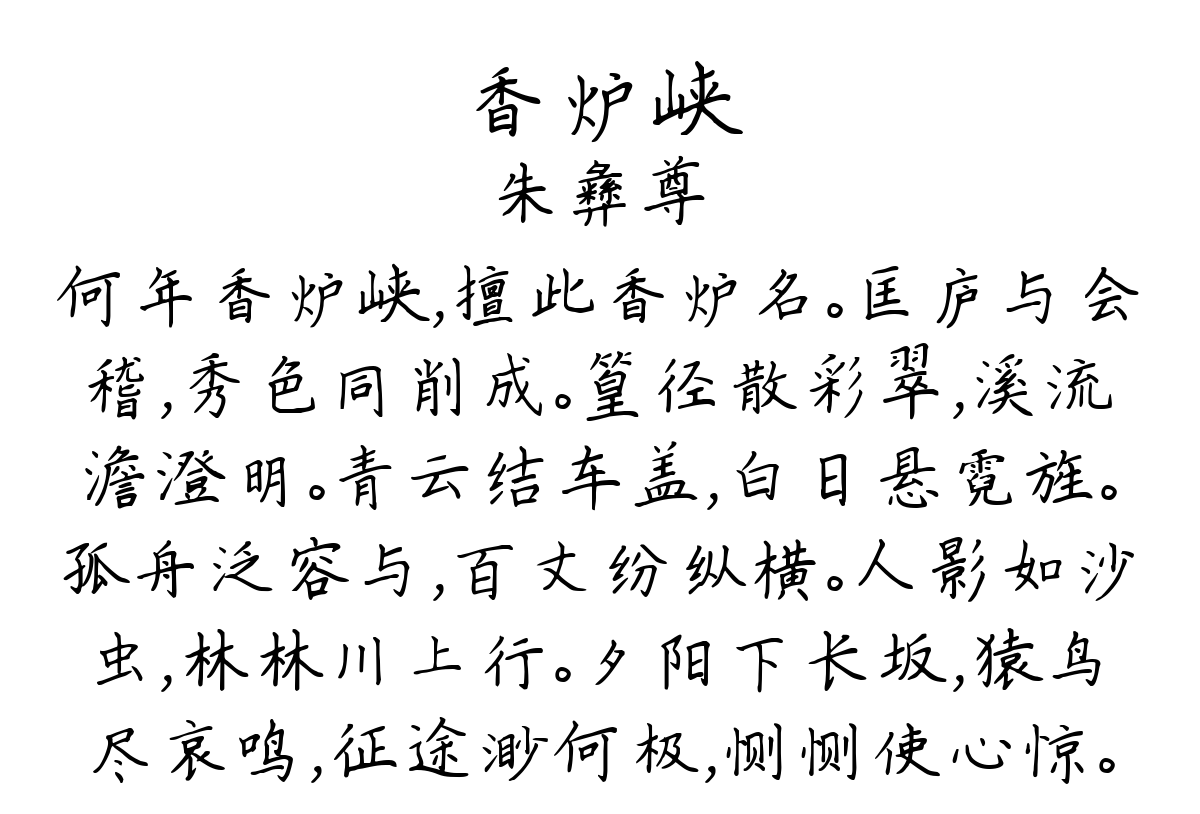 香炉峡
朱彝尊
何年香炉峡,擅此香炉名。匡庐与会
稽,秀色同削成。篁径散彩翠,溪流
澹澄明。青云结车盖,白日悬霓旌。
孤舟泛容与,百丈纷纵横。人影如沙
虫,林林川上行。夕阳下长坂,猿鸟
尽哀鸣,征途渺何极,恻恻使心惊。